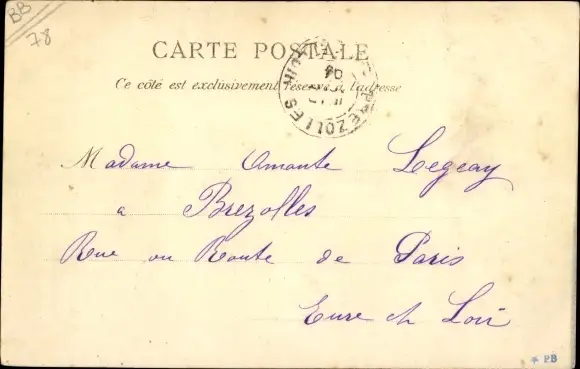 BB
78
CARTE POSTALE
Ce côté est exclusivement réservé à l'adresse
BREZOLLES
Madame Amante Legeay
a Brezolles
Rue ou Route de Paris
Eure et Loir
* PB